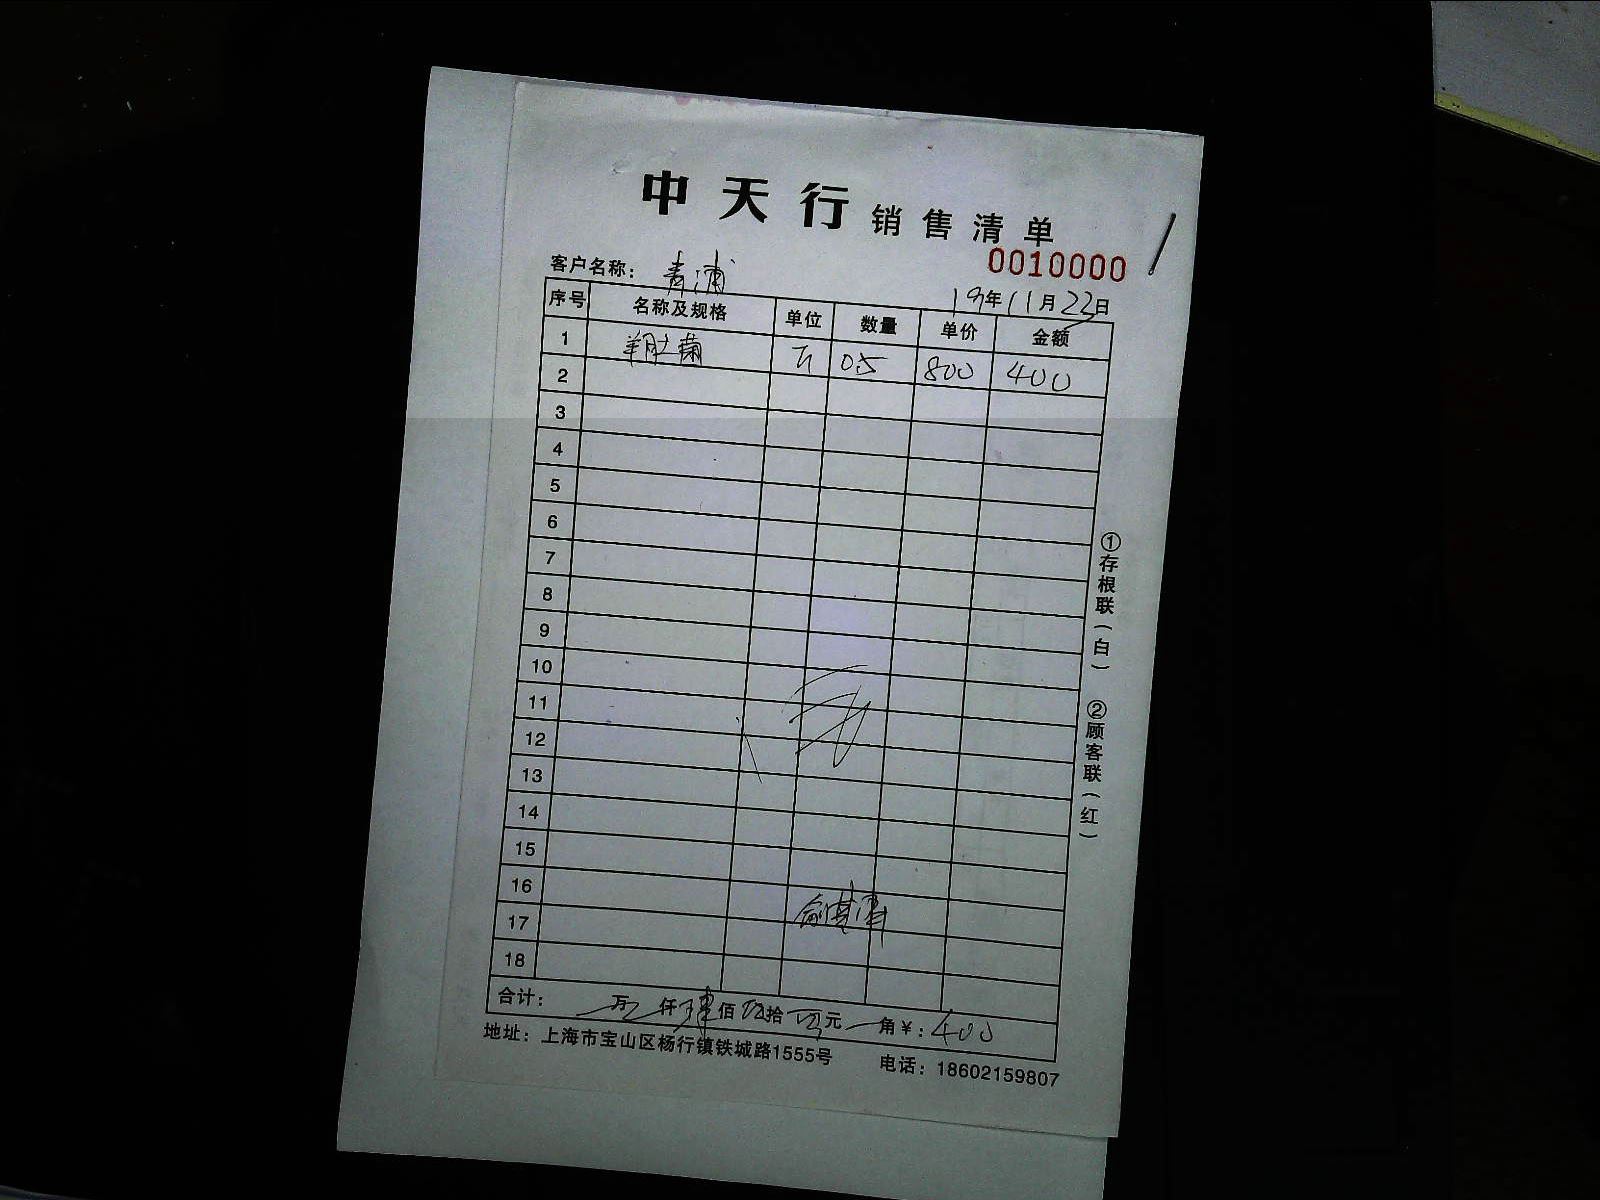 中天行销售清单
0010000
客户名称：青浦
19年11月22日
序号 名称及规格 单位 数量 单价 金额
1 05 800 400
2
3
4
5
6
7
8
9
10
11
12
13
14
15
16
17
18
合计： 万 仟肆佰 拾 元 角￥：400
地址：上海市宝山区杨行镇铁城路1555号 电话：18602159807
①存根联（白）
②顾客联（红）